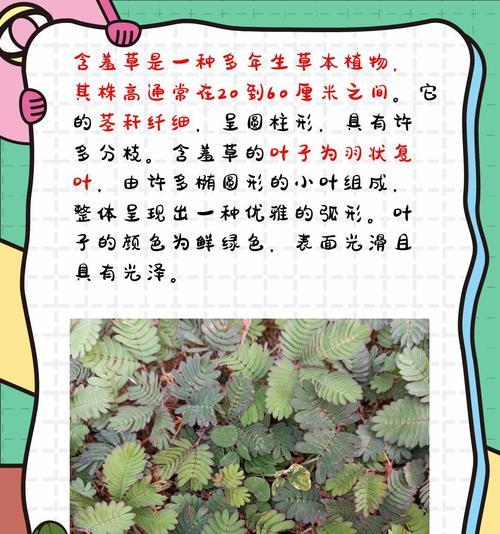 含羞草是一种多年生草本植物，
其株高通常在20到60厘米之间。它
的茎秆纤细，呈圆柱形，具有许
多分枝。含羞草的叶子为羽状复
叶，由许多椭圆形的小叶组成，
整体呈现出一种优雅的弧形。叶
子的颜色为鲜绿色，表面光滑且
具有光泽。